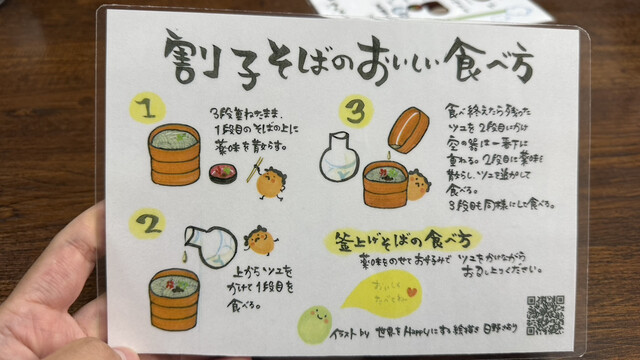 割子そばのおいしい食べ方
1
3段重ねたまま、
1段目のそばの上に
薬味を散らす。
2
上からツユを
かけて1段目を
食べる。
3
食べ終えたら残った
ツユを2段目にかけ
空の器は一番下に
重ねる。2段目に薬味を
散らし、ツユを適かして
食べる。
3段目も同様にして食べる。
釜上げそばの食べ方
薬味をのせてお好みで ツユをかけながら
お召し上りください。
おいしく
たべてね
イラスト by 世界をHappyにする絵描き 日野